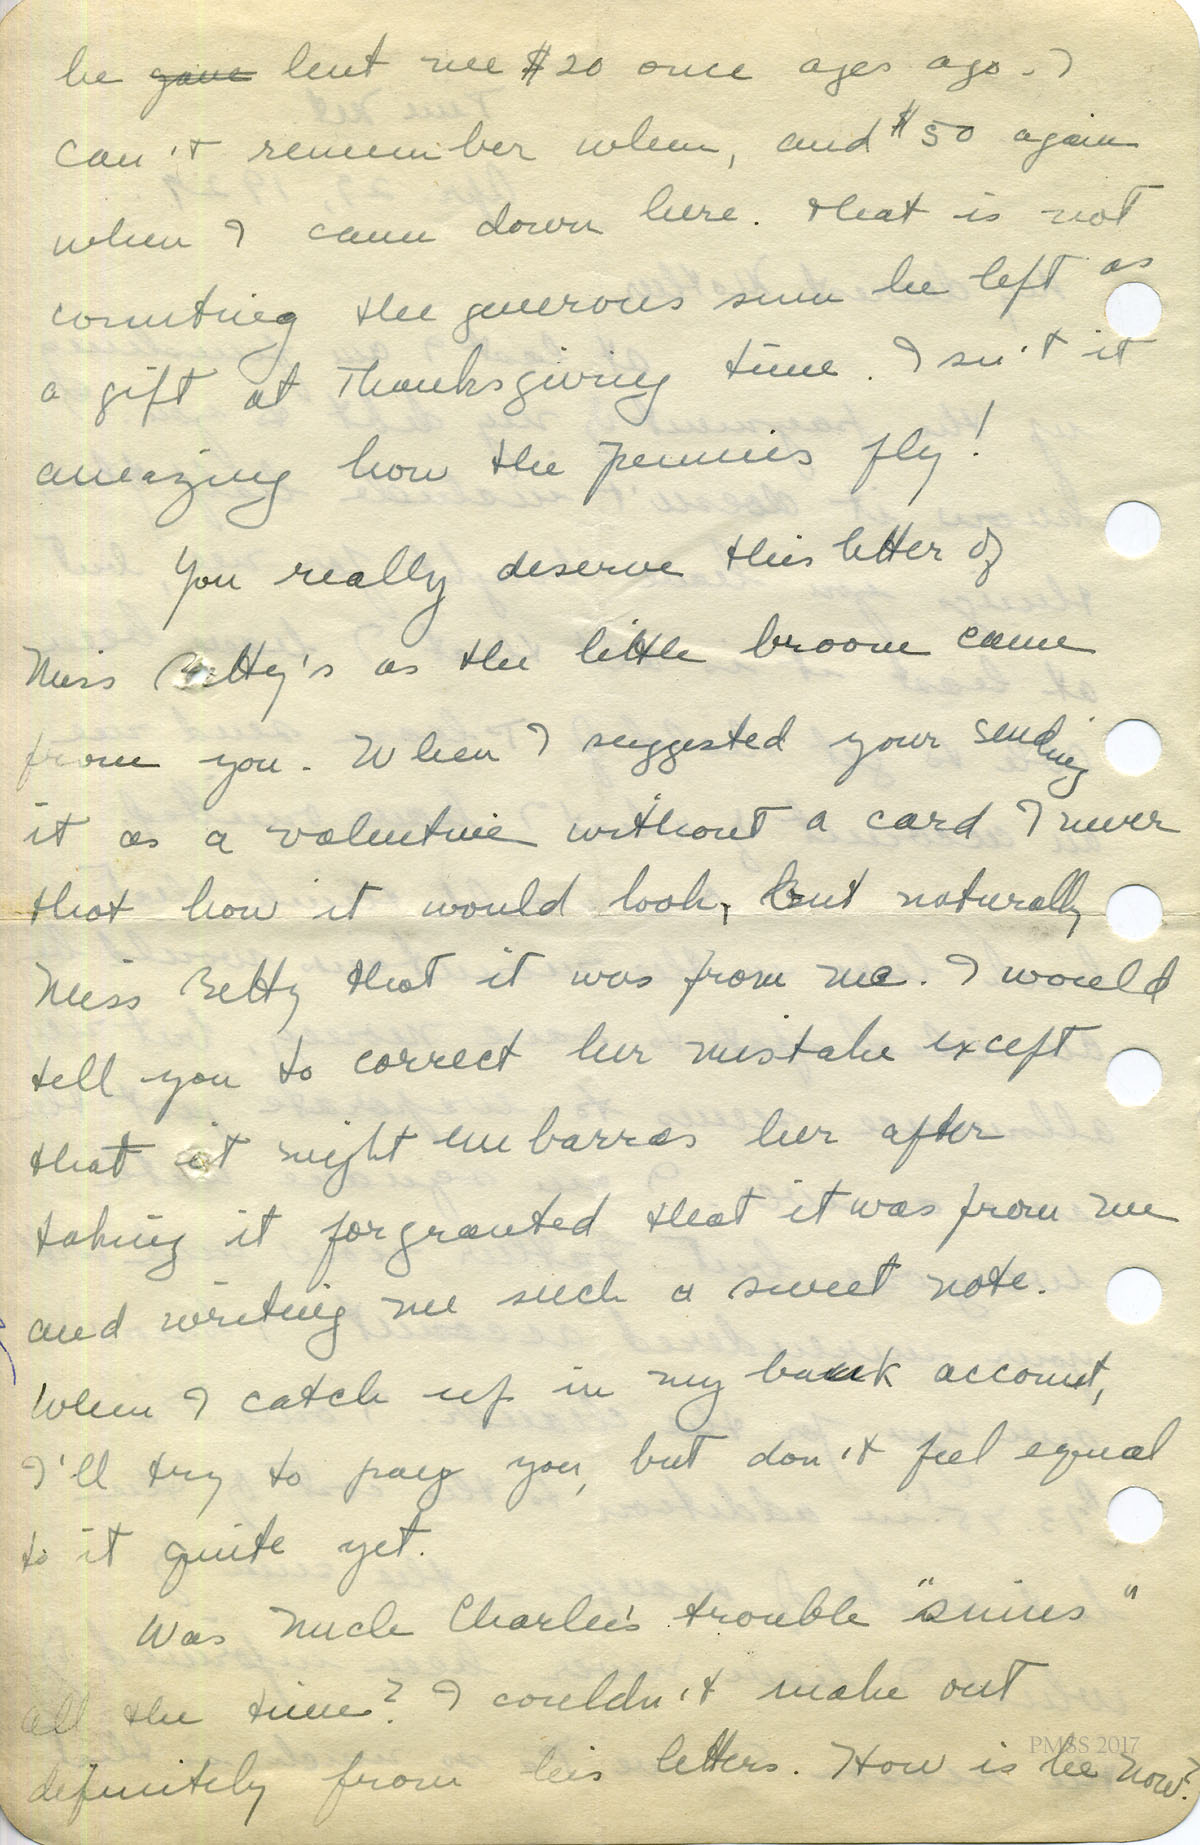 he gave lent me $20 once ages ago. I
can't remember when, and $50 again
when I came down here. that is not
counting the generous sum he left as
a gift at Thanksgiving time. Isn't it
amazing how the pennies fly!
You really deserve this letter of
Miss Betty's as the little broom came
from you. When I suggested your sending
it as a valentine without a card I never
that how it would look, but naturally
Miss Betty that it was from me. I would
tell you to correct her mistake except
that it might embarras her after
taking it for granted that it was from me
and writing me such a sweet note.
When I catch up in my bank account,
I'll try to pay you, but don't feel equal
to it quite yet.
Was Charlie's trouble "sinus"
all the time? I couldn't make out
definitely from his letters. How is he now?
PMSS 2017